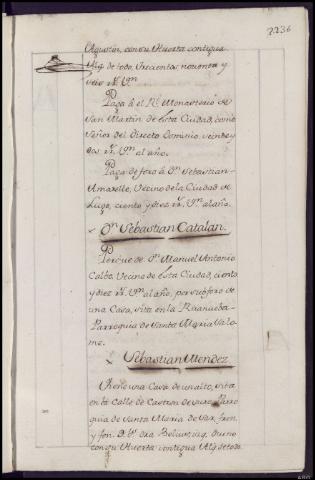 2236
Agustin, con su Huerta contigua
Alq. de todo, trescientos noventa y
seis rs. Vn.
Paga á el Rl. Monasterio de
San Martin de esta Ciudad, como
Señor del Directo Dominio, veinte y
dos rs. Vn. al año.
Paga de foro á Dn. Sebastian
Amarelle, Vecino de la Ciudad de
Lugo, ciento y diez rs. Vn. al año.
Dn. Sebastian Catalan.
Percive de Dn. Manuel Antonio
Calbo Vecino de esta Ciudad, ciento
y diez rs. Vn. al año, por subforo de
una Casa, sita en la Rua nueba
Parroquia de Santa Maria Salo-
me.
Sebastian Mendez
Tiene una Casa de un alto, sita
en la Calle de Castron de oure Parro
quia de Santa Maria de Sar, fren.
y fon.
con su Huerta contigua Alq. de todo